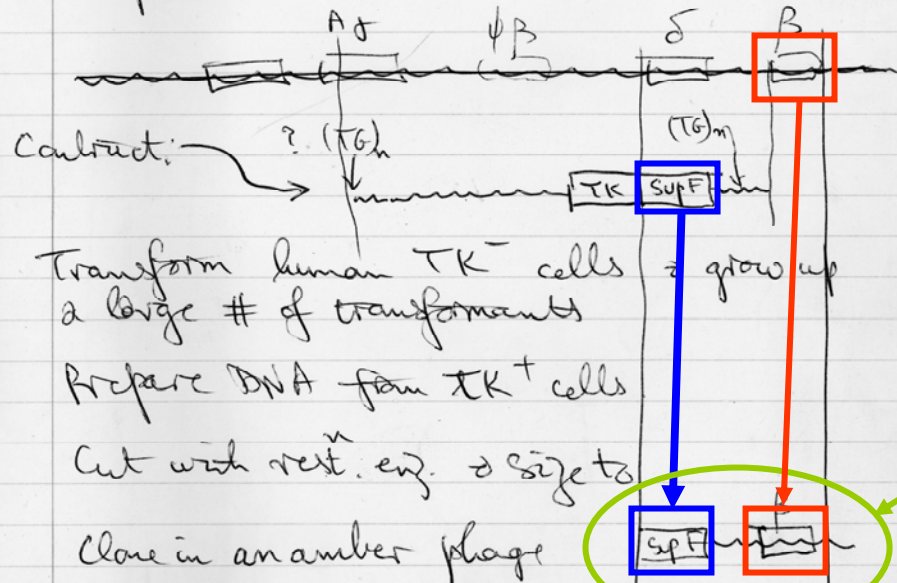 Aγ ψβ δ β
Contruct: ? (TG)n (TG)n
TK SupF
Transform human TK⁻ cells & grow up
a large # of transformants
Prepare DNA from TK⁺ cells
Cut with restⁿ. enz. & size to
Clone in an amber phage SupF β